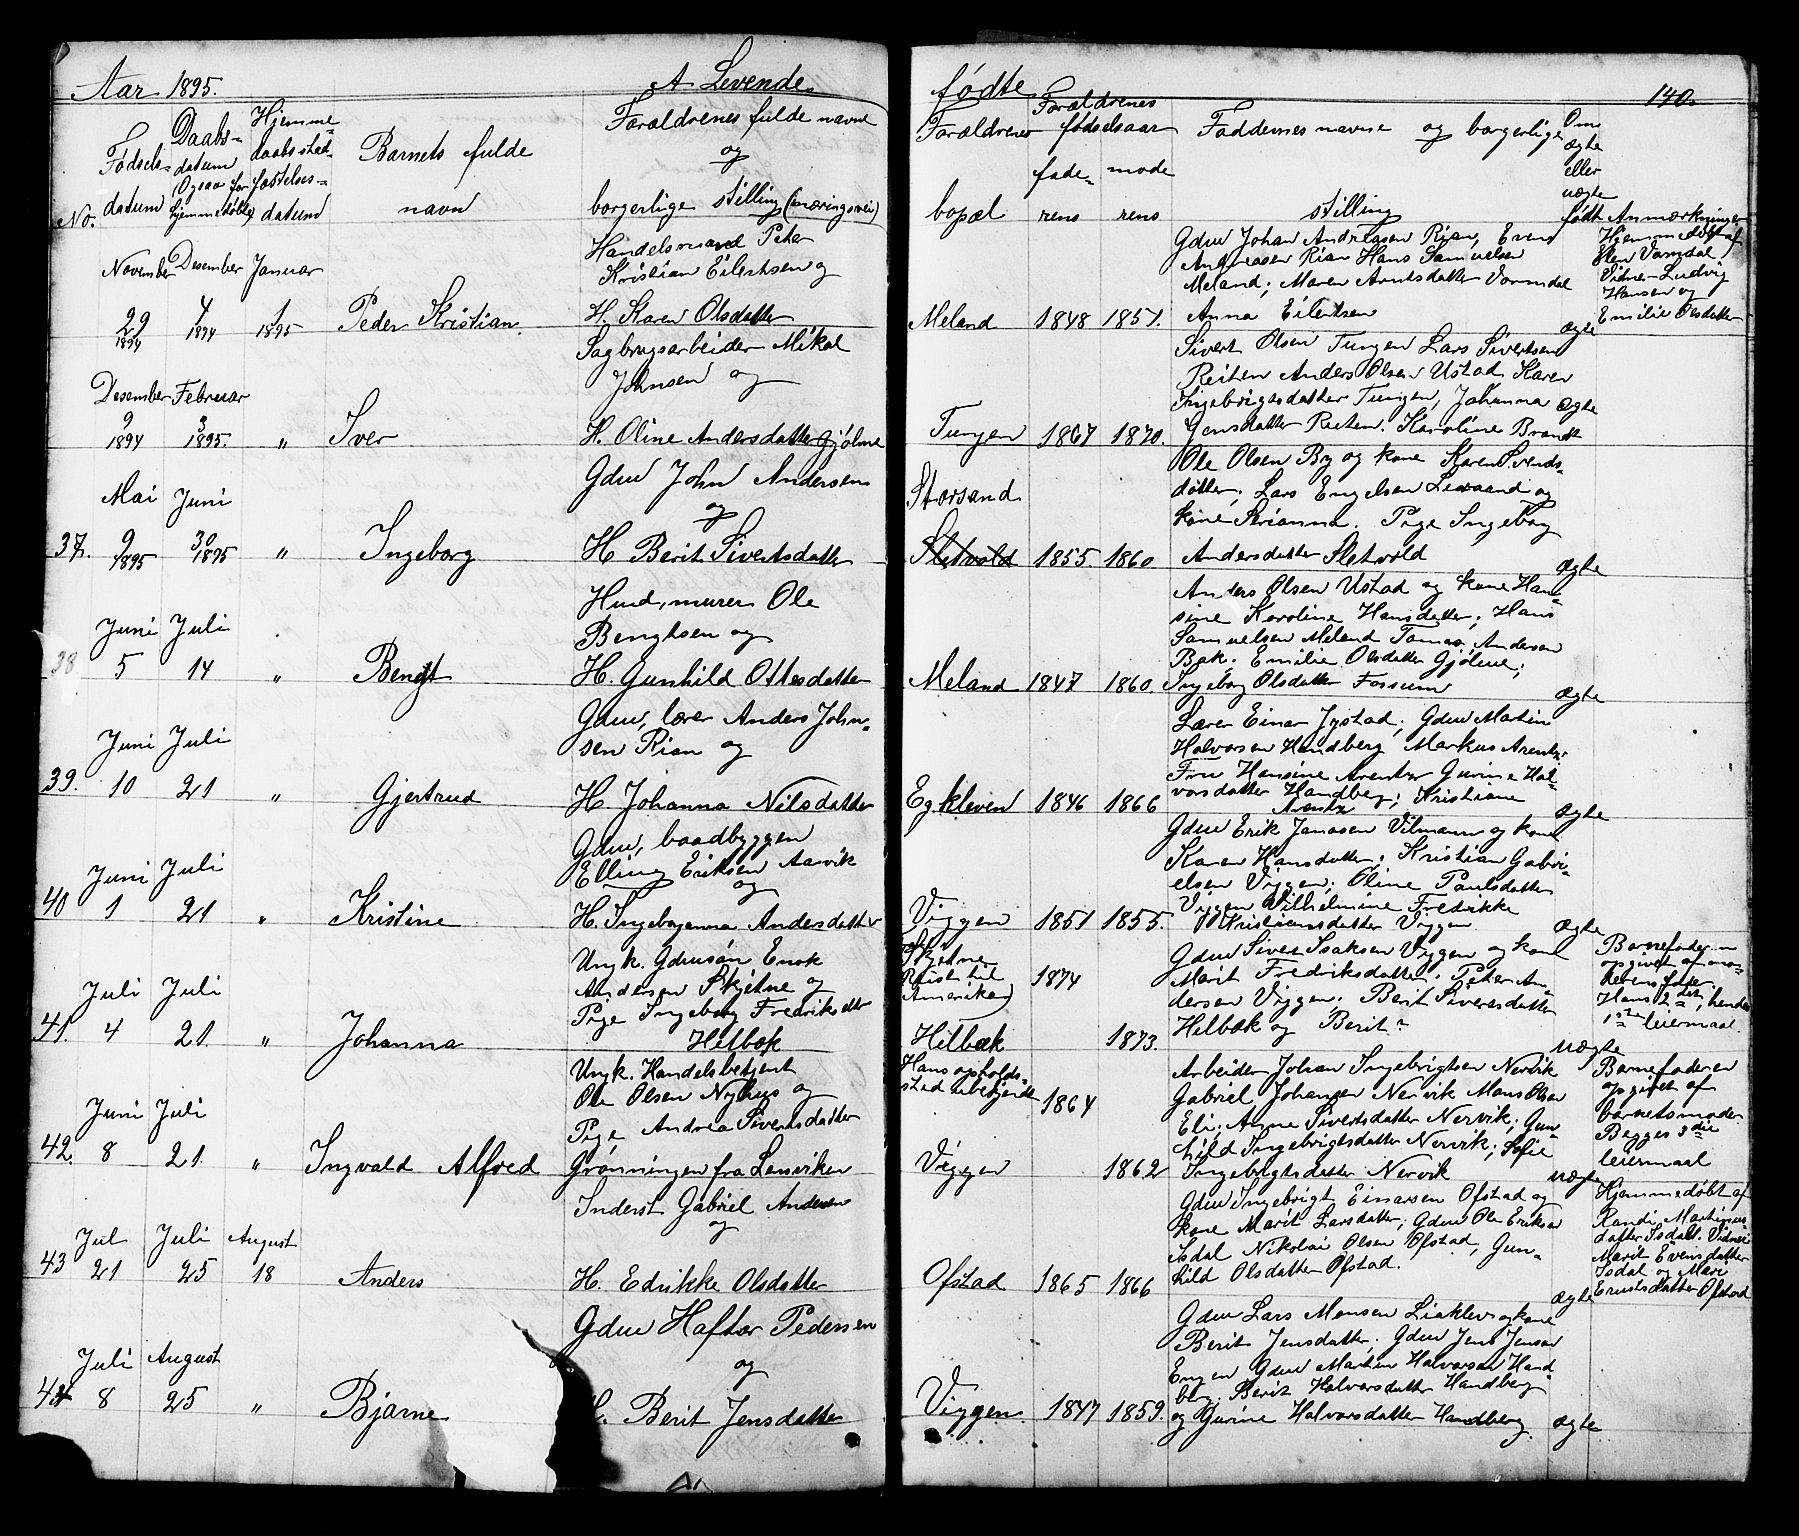 Aar 1895. A Levende fødte 140.
No.
Fødsels-
datum
Daabs-
datum
Ogsaa for
hjemmedøbte
Hjemme-
daabs sted-
fæstelses-
datum
Barnets fulde
navn
Forældrenes fulde navne
og
borgerlige stilling (næringsvei)
Forældrenes
bopæl
Forældrenes
fødselsaar
fade-
rens
mode
rens
Faddernes navne og borgerlige
stilling
Om
ægte
eller
uægte
født
Anmærkninger
November Desember Januar
29
1894
4
1894
1
1895
Peder Kristian.
Handelsmand Peter
Kristian Eilertsen og
H. Karen Olsdatter
Meland 1848 1851.
Gdm Johan Andreasen Rian, Even
Andreasen Rian Hans Samuelsen
Meland; Maren Arntsdatter Vormdal
Anna Eilertsen
ægte
Hjemmedøbt af
Elen Vormdal
Vidner Ludvig
Hansen og
Emilie Olsdatter
Desember Februar
9
1894
3
1895.
"
Iver
Sagbrugsarbeider Mikal
Johnsen og
H. Oline Andersdatter Gjølme
Tungen 1867 1870.
Sivert Olsen Tungen Lars Sivertsen
Reiten Anders Olsen Ustad Karen
Ingebrigtsdatter Tungen, Johanna
Jensdatter Reiten. Karoline Brandt
ægte
Mai Juni
37. 9
1895
30
1895
"
Ingeborg
Gdm John Andersen
og
H Berit Sivertsdatter
Storsand
Sletvold 1855. 1860
Ole Olsen By og kone Karen Svends-
datter; Lars Engelsen Lexaand og
kone Kristianna. Pige Ingeborg
Andersdatter Sletvold
ægte
Juni Juli
38 5 14 "
Bengt
Husm, murer Ole
Bengtsen og
H. Gunhild Ottesdatter
Meland 1847 1860.
Anders Olsen Ustad og kone Han-
sine Karoline Hansdatter; Hans
Samuelsen Meland Tomas Andersen
Bak; Emilie Olsdatter Gjølme;
Ingeborg Olsdatter Fossum
ægte
Juni Juli
39. 10 21 "
Gjertrud
Gdm, lærer Anders John-
sen Rian og
H Johanna Nilsdatter
Egkleven 1846 1866
Lærer Einar Jystad; Gdm Martin
Halvorsen Handberg Markus Arentz.
Fru Hansine Arentz Gurine Hal-
vorsdatter Handberg; Kristiane
Arentz
ægte
Juni Juli
40 1 21 "
Kristine
Gdm, baadbygger
Elling Eriksen Aarvik
og
H. Ingeboganna Andersdatter
Viggen 1851 1855.
Gdm Erik Jonassen Vilmann og kone
Karen Hansdatter; Kristian Gabri-
elsen Viggen; Oline Paulsdatter
Viggen Vilhelmine Fredrikke
Kristiansdatter Viggen
ægte
Juli Juli
41. 4 21. "
Johanna
Ungk. Gdmsøn Enok
Andersen Skjetne og
Pige Ingeborg Fredriksdtr
Hilbæk
Skjetne
(Reist til
Amerika)
1874
Hilbæk 1873.
Gdm Siver Isaksen Viggen og kone
Marit Fredriksdatter, Peter An-
dersen Viggen; Berit Siversdatter
Hilbæk og Berit ?
uægte
Barnefader
opgivet af mo-
derens fader.
Hans 2det, hendes
1ste leiermaal.
Juni Juli
42. 8 21. "
Ingvald Alfred
Ungk. Handelsbetjent
Ole Olsen Nyhus og
Pige Andrea Sivertsdatter
Grønningen fra Lensviken
Hans opholds-
sted ubekjendt 1864
Viggen 1862
Arbeider Johan Ingebrigtsen Nervik
Gabriel Johansen Nervik Mons Olsen
Eli; Anne Sivertsdatter Nervik; Gun-
hild Ingebrigtsdatter Nervik; Sofie
Ingebrigtsdatter Nervik
uægte
Barnefader er
opgivet af
barnets moder.
Begges 3die
leiermaal
Jul Juli August
43 21 25 18
Anders
Inderst Gabriel Andersen
og
H. Edrikke Olsdatter
Ofstad 1865 1866
Gdm Ingebrigt Einarsen Ofstad og
kone Marit Larsdatter; Gdm Ole Eriksen
Isdal Nikolai Olsen Ofstad, Gun-
hild Olsdatter Ofstad.
ægte
Hjemmedøbt af
Randi Martinus-
datter Isdal. Vidner
Marit Evensdatter
Isdal og Mari
Ernstsdatter Ofstad
Juli August
44 8 25 "
Bjarne
Gdm Haftor Pedersen
og
H. Berit Jensdatter
Viggen. 1847 1859.
Gdm Lars Monsen Liaklev og kone
Berit Jensdatter; Gdm Jens Jensen
Engen Gdm Martin Halvorsen Hand-
berg. Berit Halvorsdatter Handberg
og Gurine Halvorsdatter Handberg.
ægte